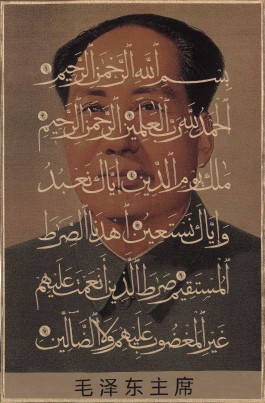 بِسْمِ ٱللَّهِ ٱلرَّحْمَٰنِ ٱلرَّحِيمِ ١
ٱلْحَمْدُ لِلَّهِ رَبِّ ٱلْعَٰلَمِينَ ٢ ٱلرَّحْمَٰنِ ٱلرَّحِيمِ ٣
مَٰلِكِ يَوْمِ ٱلدِّينِ ٤ إِيَّاكَ نَعْبُدُ
وَإِيَّاكَ نَسْتَعِينُ ٥ ٱهْدِنَا ٱلصِّرَٰطَ
ٱلْمُسْتَقِيمَ ٦ صِرَٰطَ ٱلَّذِينَ أَنْعَمْتَ عَلَيْهِمْ
غَيْرِ ٱلْمَغْضُوبِ عَلَيْهِمْ وَلَا ٱلضَّآلِّينَ ٧
毛泽东主席